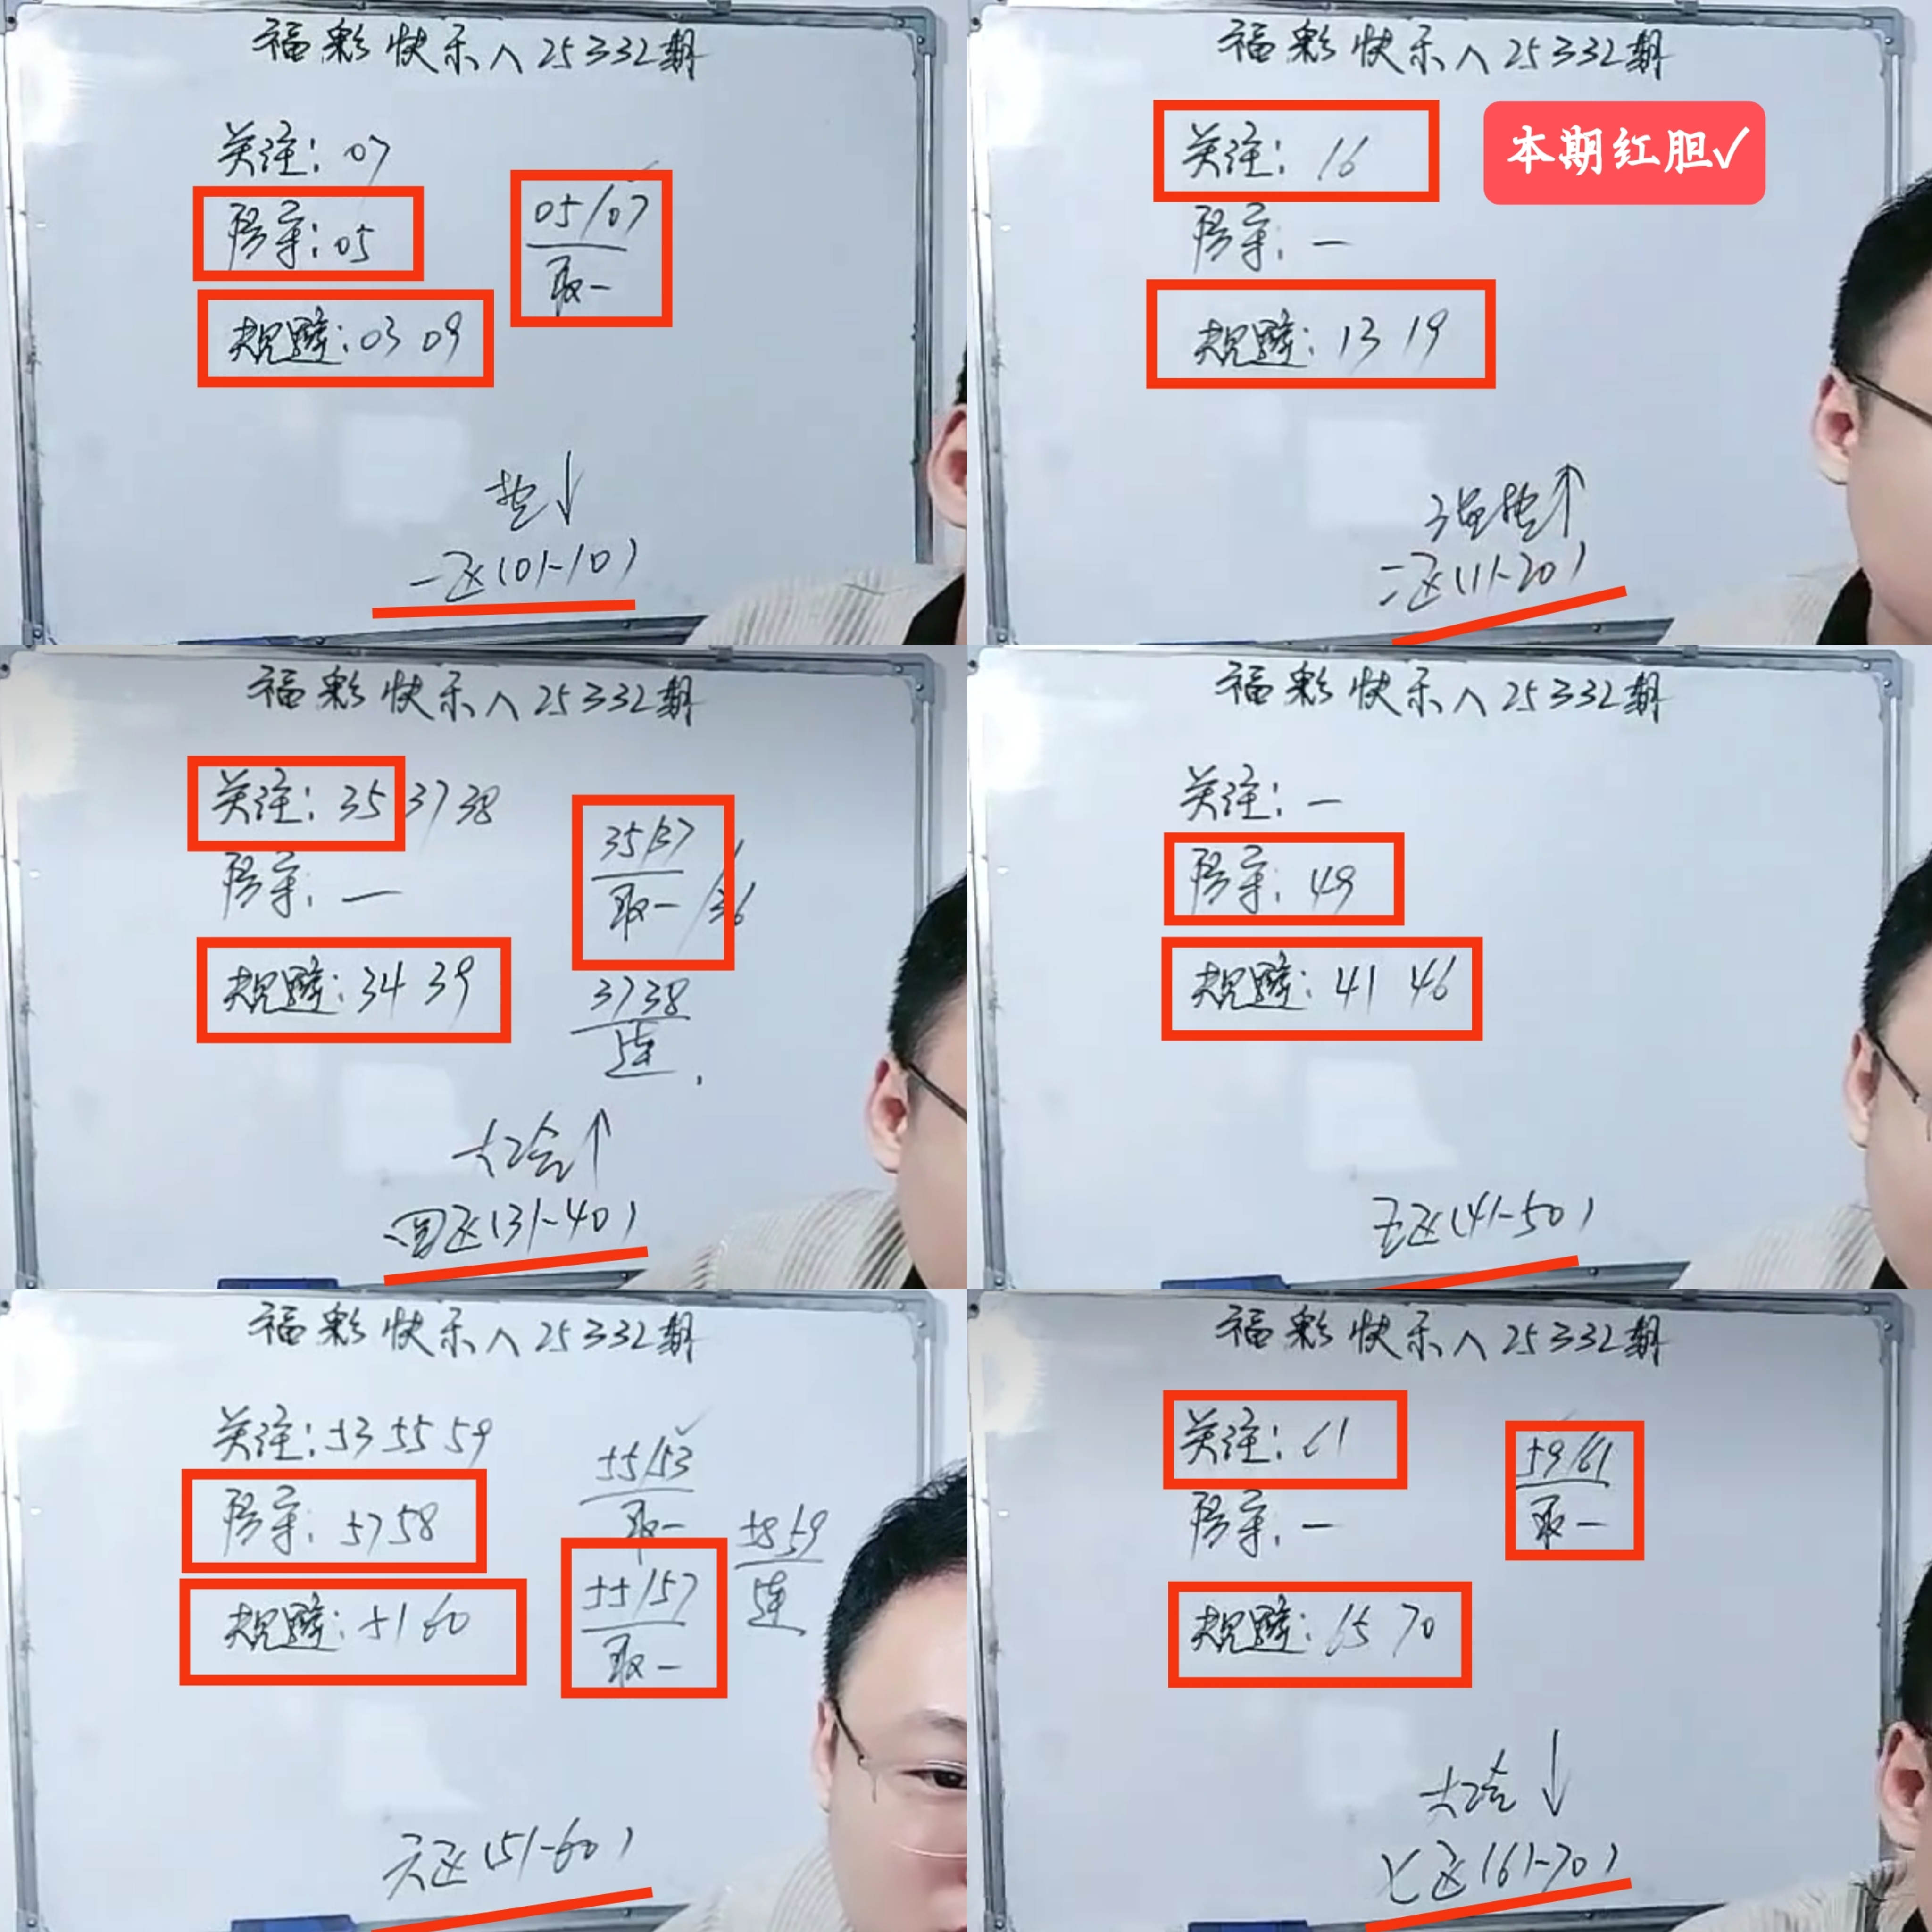 福彩快乐八25332期
关注：07
防守：05
规避：03 09
05/07
取一
↓
一区(01-10)
福彩快乐八25332期
关注：16
本期红胆✓
防守：一
规避：13 19
↑
二区(11-20)
福彩快乐八25332期
关注：35 37 38
防守：一
规避：34 39
35/37
取一/36
37 38
连
↑
四区(31-40)
福彩快乐八25332期
关注：一
防守：49
规避：41 46
五区(41-50)
福彩快乐八25332期
关注：53 55 59
防守：57 58
规避：51 60
55/53
取一
55/57
取一
58 59
连
六区(51-60)
福彩快乐八25332期
关注：61
防守：一
规避：65 70
59/61
取一
↓
七区(61-70)